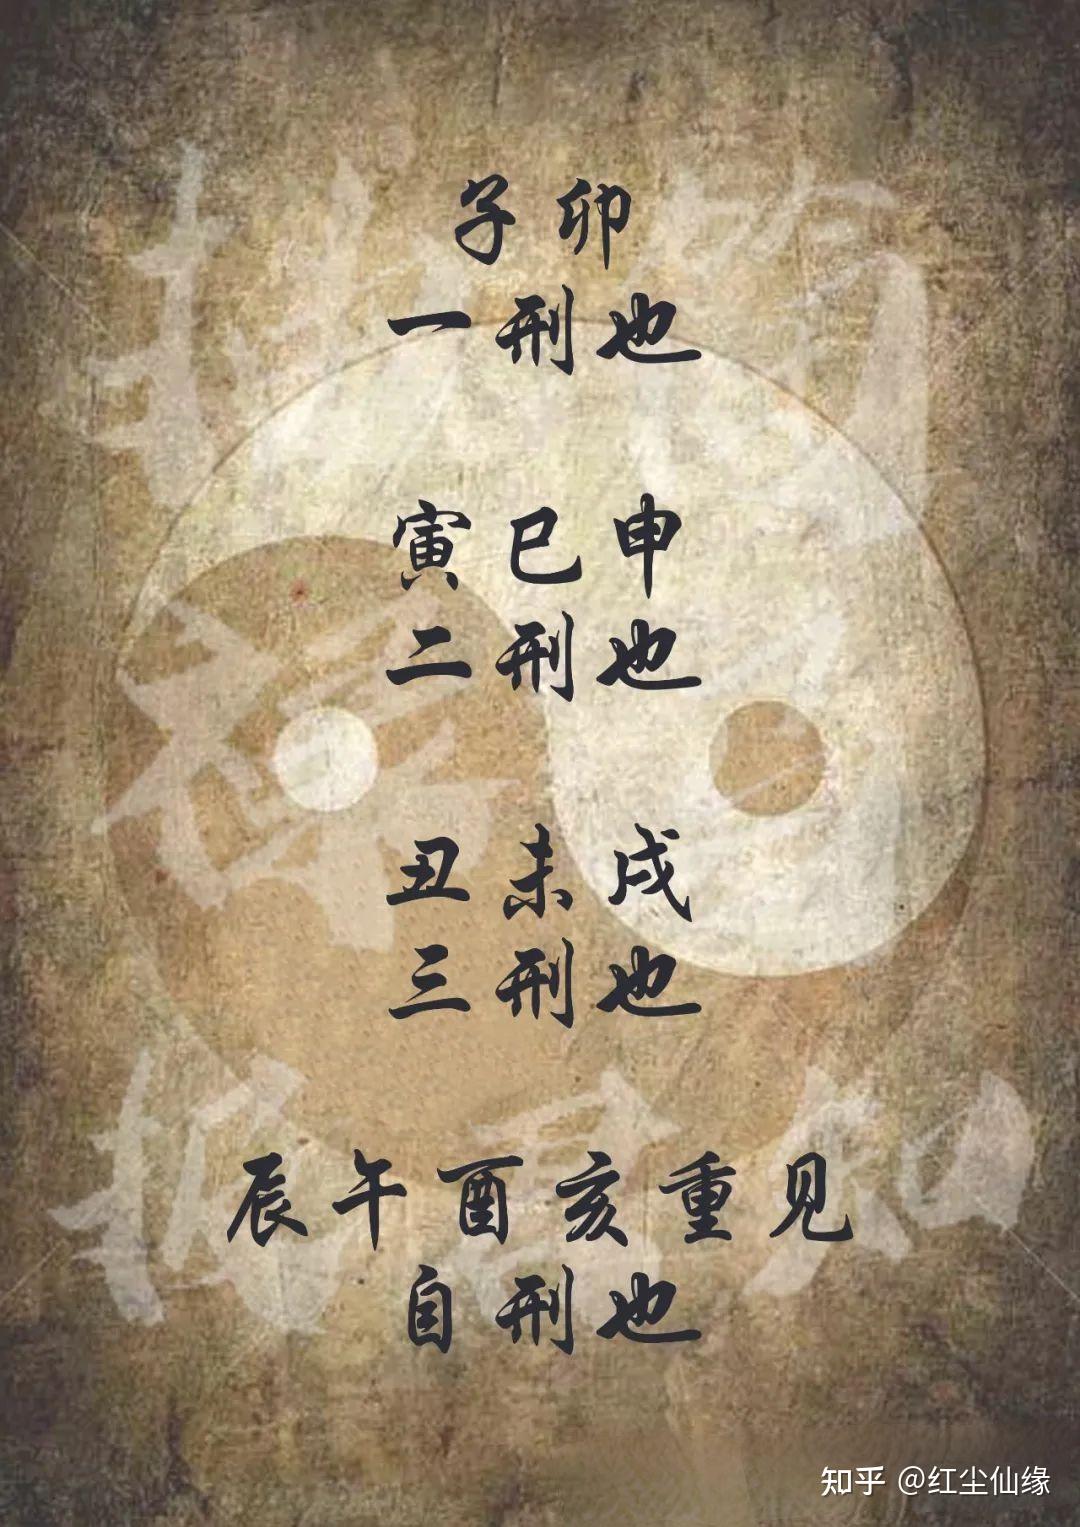 子卯
一刑也
寅巳申
二刑也
丑未戌
三刑也
辰午酉亥重见
自刑也
知乎 @红尘仙缘